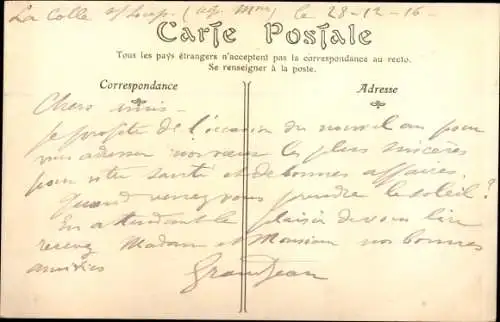 La Colle s/ Loup. (Alp. Mmes) le 28-12-16-
Carte Postale
Tous les pays étrangers n'acceptent pas la correspondance au recto.
Se renseigner à la poste.
Correspondance
Adresse
Chers amis -
Je profite de l'occasion du nouvel an pour
vous adresser nos vœux les plus sincères
pour votre santé et de bonnes affaires.
Quand venez vous prendre le soleil?
En attendant le plaisir de vous lire
recevez Madame et Monsieur nos bonnes
amitiés
Grandjean